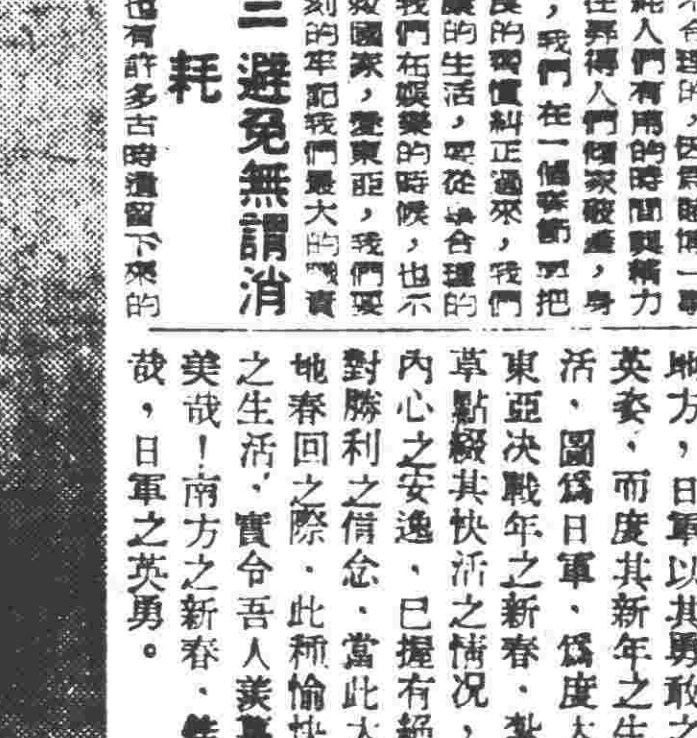 純人們有用的時間與精力
在弄得人們傾家破產，身
，我們在一個春節要把
的習慣糾正過來，我們
的生活，要從最合理的
我們在娛樂的時候，也不
國家，愛東亞，我們要
刻的牢記我們最大的
三 避免無謂消
耗
也有許多古時遺留下來的
地方，日軍以其勇敢之
英姿、而度其新年之生
活、圖爲日軍、爲度大
東亞决戰年之新春、
草點綴其快活之情况，
內心之安逸、已握有絕
對勝利之信念、當此大
地春回之際、此種愉快
之生活、實令吾人羨
美哉！南方之新春、
哉，日軍之英勇。